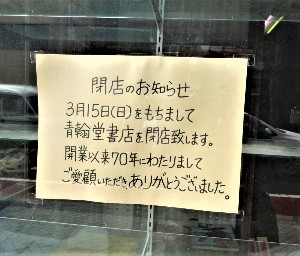 閉店のお知らせ
3月15日(日)をもちまして
青翰堂書店を閉店致します。
開業以来70年にわたりまして
ご愛顧いただき、ありがとうございました。